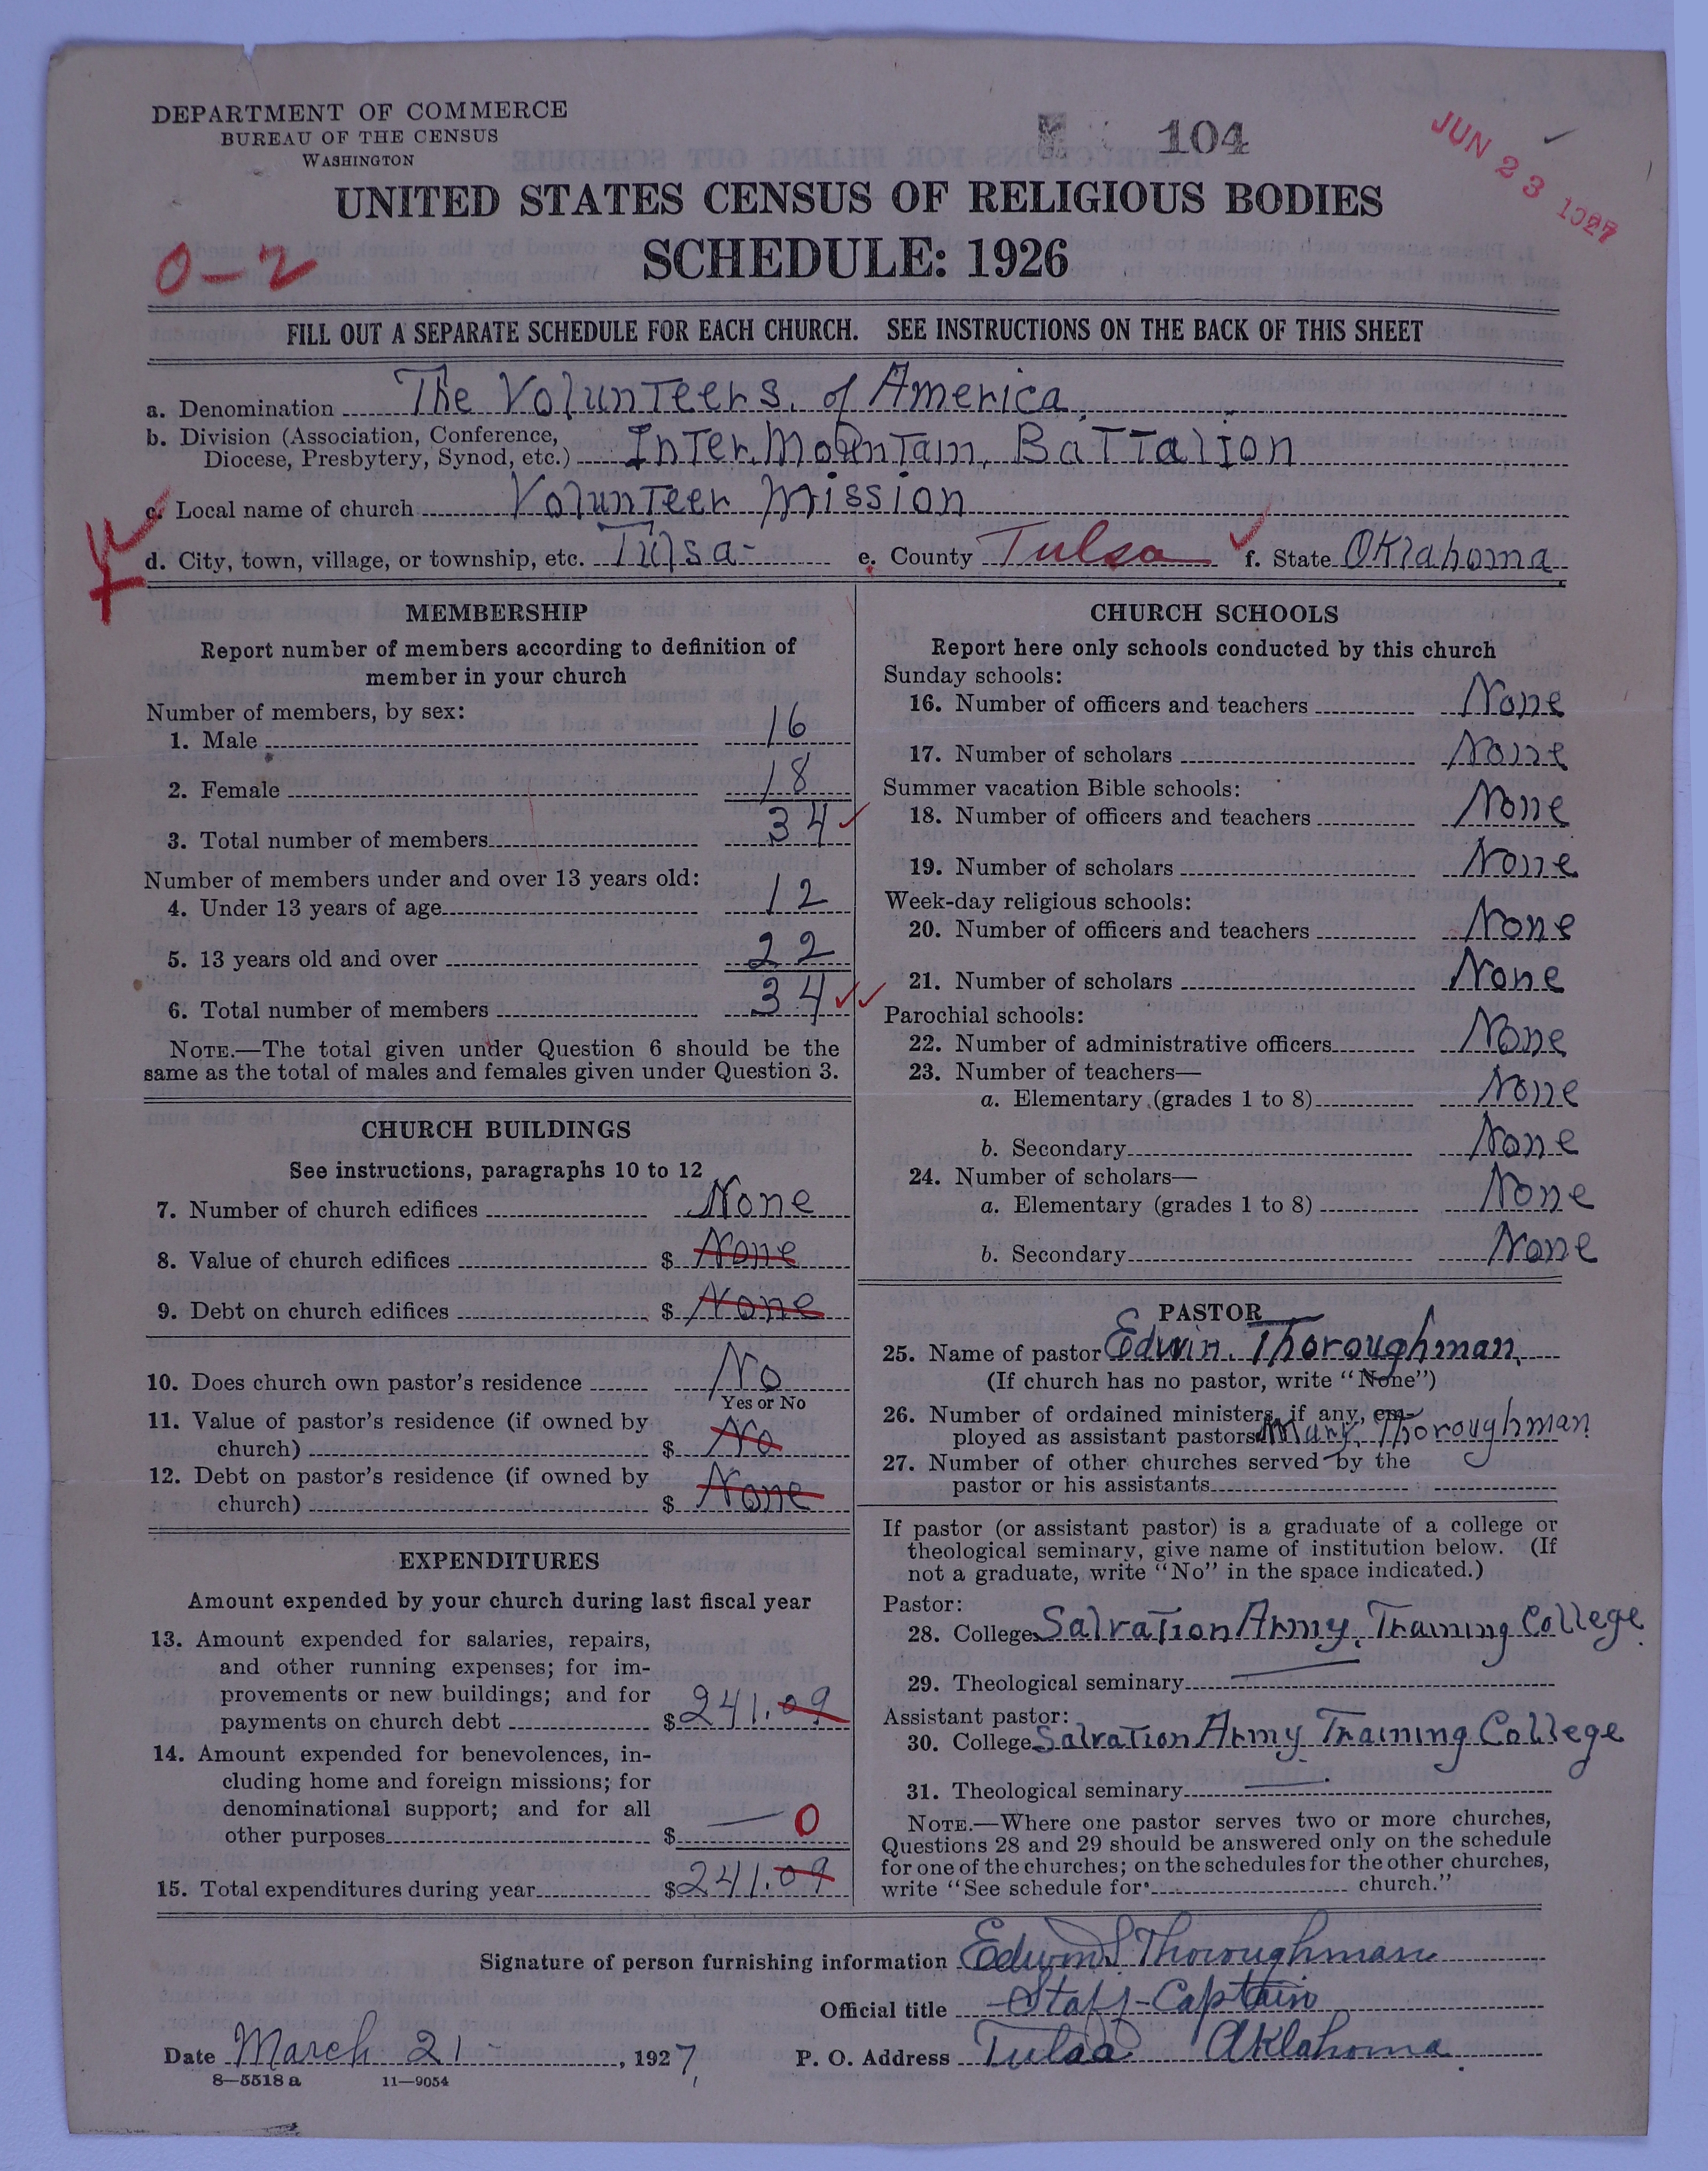 DEPARTMENT OF COMMERCE
BUREAU OF THE CENSUS
WASHINGTON
104
JUN 23 1927
UNITED STATES CENSUS OF RELIGIOUS BODIES
SCHEDULE: 1926
0-2
FILL OUT A SEPARATE SCHEDULE FOR EACH CHURCH. SEE INSTRUCTIONS ON THE BACK OF THIS SHEET
a. Denomination The Volunteers. of America.
b. Division (Association, Conference,
Diocese, Presbytery, Synod, etc.) Inter.Mountain. Battalion
c. Local name of church Volunteer Mission
d. City, town, village, or township, etc. Tulsa- e. County Tulsa f. State Oklahoma
MEMBERSHIP
Report number of members according to definition of
member in your church
Number of members, by sex:
1. Male 16
2. Female 18
3. Total number of members 34
Number of members under and over 13 years old:
4. Under 13 years of age 12
5. 13 years old and over 22
6. Total number of members 34
NOTE.—The total given under Question 6 should be the
same as the total of males and females given under Question 3.
CHURCH BUILDINGS
See instructions, paragraphs 10 to 12
7. Number of church edifices None
8. Value of church edifices $ None
9. Debt on church edifices $ None
10. Does church own pastor's residence No
Yes or No
11. Value of pastor's residence (if owned by
church) $ No
12. Debt on pastor's residence (if owned by
church) $ None
EXPENDITURES
Amount expended by your church during last fiscal year
13. Amount expended for salaries, repairs,
and other running expenses; for im-
provements or new buildings; and for
payments on church debt $ 241.09
14. Amount expended for benevolences, in-
cluding home and foreign missions; for
denominational support; and for all
other purposes $ — 0
15. Total expenditures during year $ 241.09
CHURCH SCHOOLS
Report here only schools conducted by this church
Sunday schools:
16. Number of officers and teachers None
17. Number of scholars None
Summer vacation Bible schools:
18. Number of officers and teachers None
19. Number of scholars None
Week-day religious schools:
20. Number of officers and teachers None
21. Number of scholars None
Parochial schools:
22. Number of administrative officers None
23. Number of teachers—
a. Elementary (grades 1 to 8) None
b. Secondary None
24. Number of scholars—
a. Elementary (grades 1 to 8) None
b. Secondary None
PASTOR
25. Name of pastor Edwin. Thoroughman.
(If church has no pastor, write "None")
26. Number of ordained ministers, if any, em-
ployed as assistant pastors Mary. Thoroughman
27. Number of other churches served by the
pastor or his assistants
If pastor (or assistant pastor) is a graduate of a college or
theological seminary, give name of institution below. (If
not a graduate, write "No" in the space indicated.)
Pastor:
28. College Salvation Army. Training College
29. Theological seminary
Assistant pastor:
30. College Salvation Army Training College
31. Theological seminary
NOTE.—Where one pastor serves two or more churches,
Questions 28 and 29 should be answered only on the schedule
for one of the churches; on the schedules for the other churches,
write "See schedule for church."
Signature of person furnishing information Edwin Thoroughman
Official title Staff-Captain
Date March 21 , 1927 P. O. Address Tulsa Oklahoma
8—5518 a 11—9054